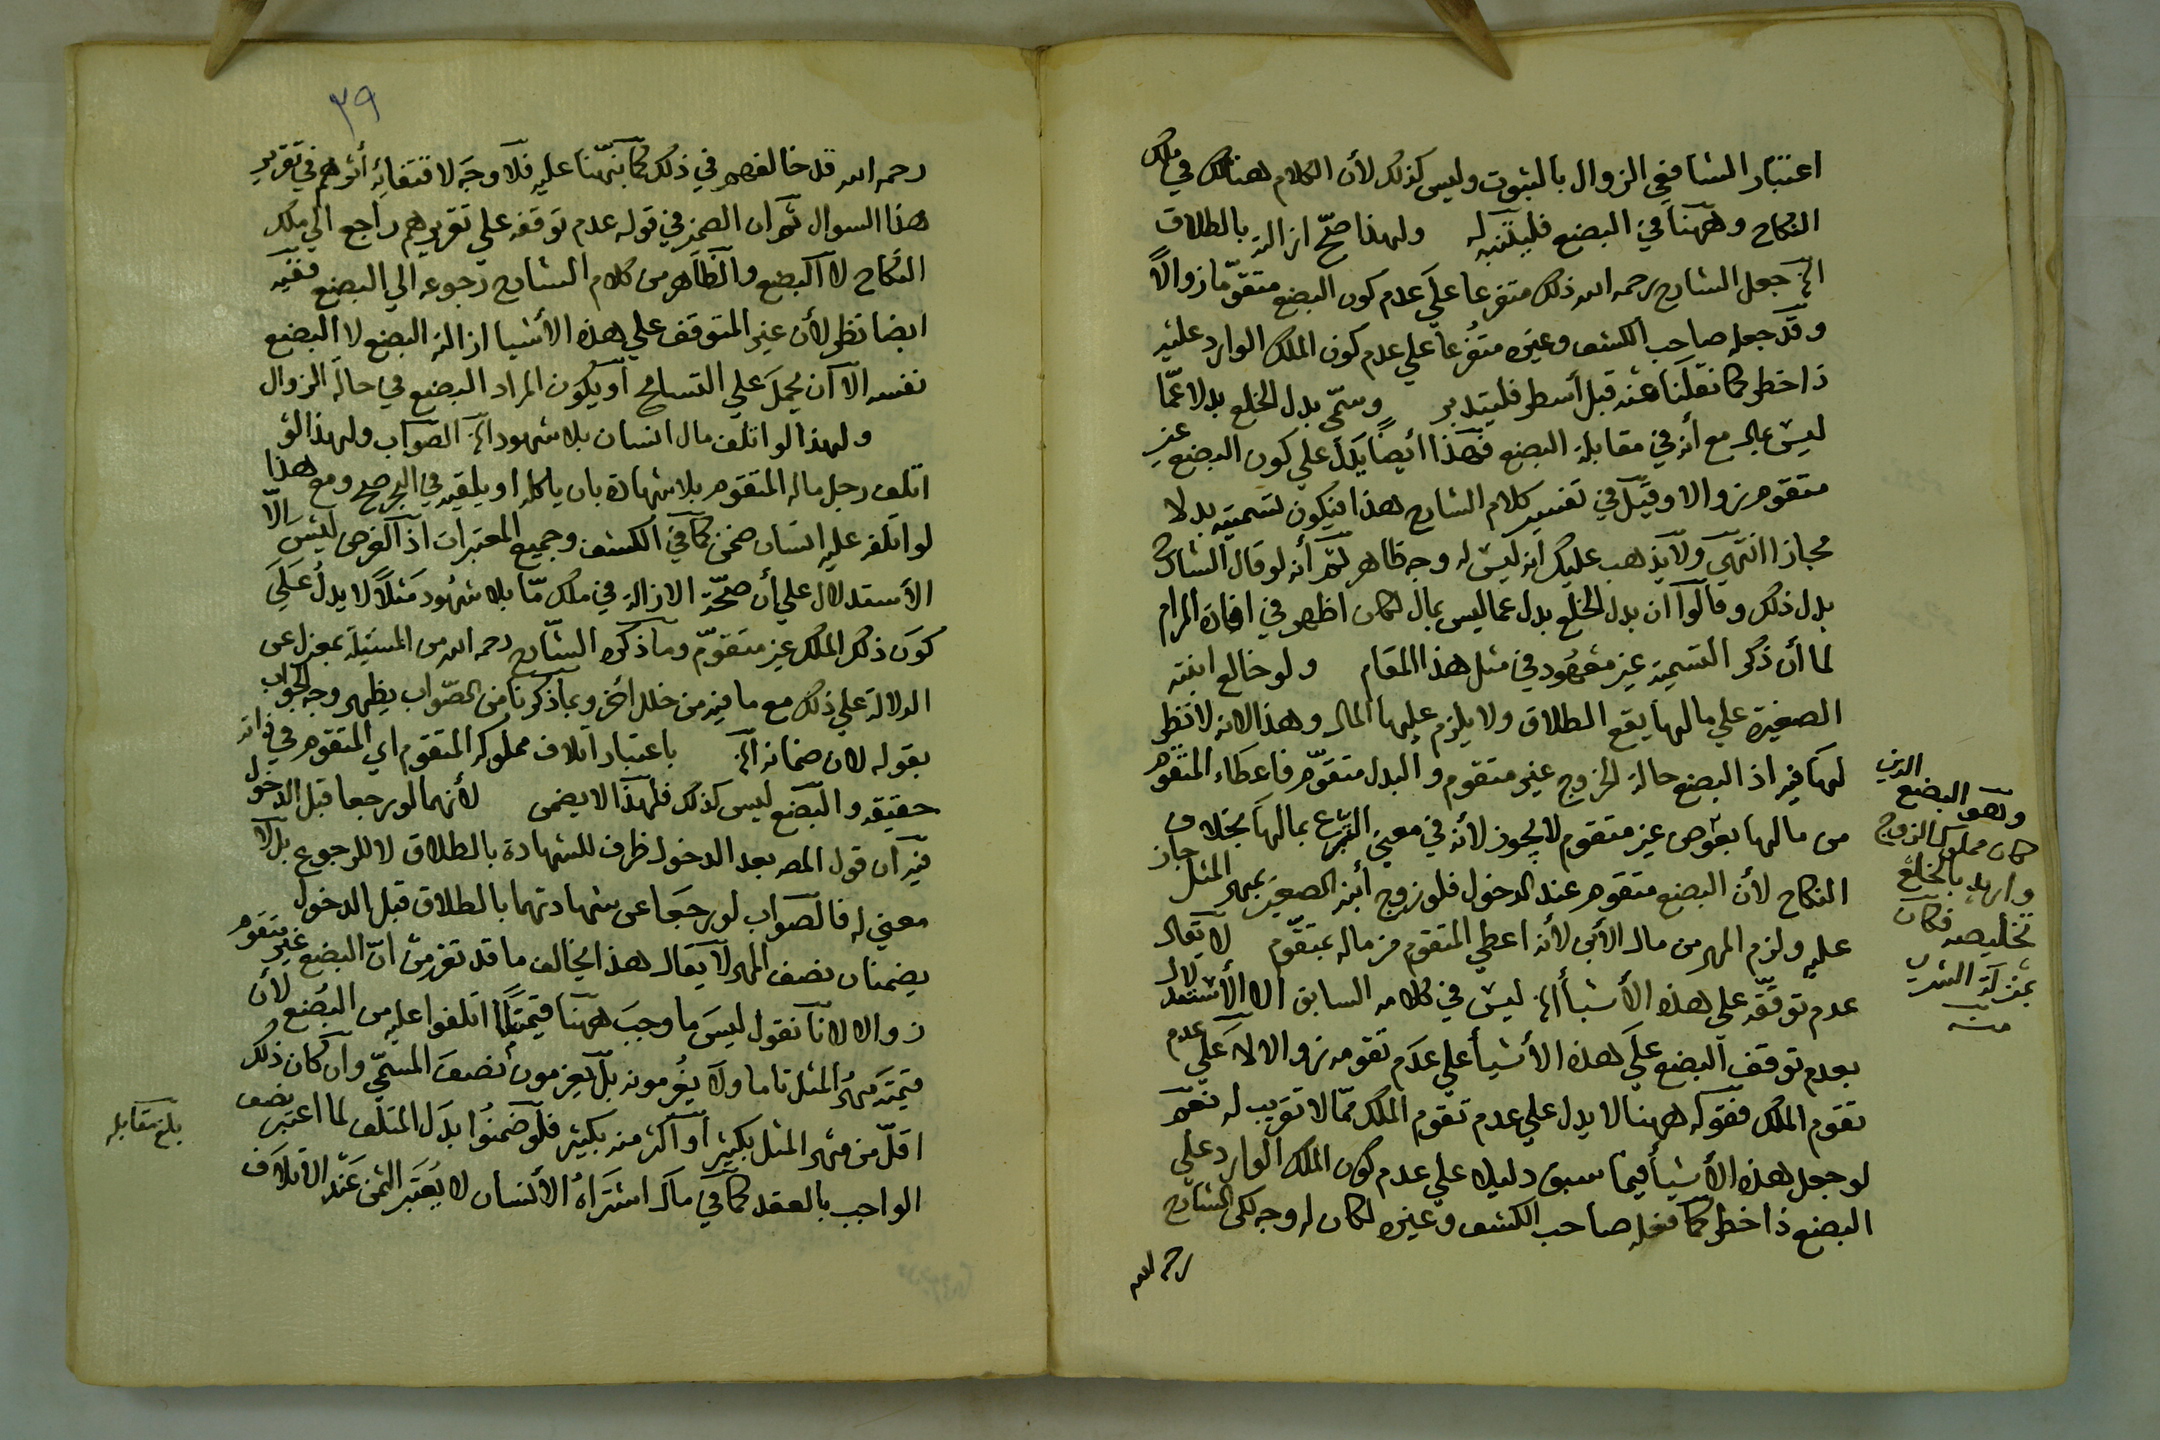 اعتبار الشافعي الزوال بالثبوت وليس كذلك لأن الكلام هنالك في ملك
النكاح وههنا في البضع فليتنبه له ولهذا صحّ ازالته بالطلاق
الخ جعل الشارح رحمه الله ذلك متفرعا علي عدم كون البضع متقوّما زوالاً
وقد جعله صاحب الكشف وغيره متفرعا علي عدم كون الملك الوارد عليه
ذا خطر كما نقلنا عنه قبل أسطر فليتدبر وسمّي بدل الخلع بدلا عمّا
ليس بمال مع أنه في مقابلة البضع فهذا أيضاً يدل علي كون البضع غير
متقوم زوالا وقيل في تفسير كلام الشارح هذا فيكون تسميته بدلا
مجازا انتهي ولا يذهب عليك أنه ليس له وجه ظاهر ثم أنه لو قال الشارح
بدل ذلك وقالوا ان بدل الخلع بدل عما ليس بمال لكان اظهر في افادة المرام
لما أن ذكر التسمية غير معهود في مثل هذا المقام ولو خالع ابنته
الصغيرة علي مالها يقع الطلاق ولا يلزم عليها المال وهذا لانه لا نظر
لها فيه اذ البضع حالة الخروج غير متقوم والبدل متقوّم فاعطاء المتقوم
من مالها بعوض غير متقوم لا يجوز لأنه في معني التبرع بمالها بخلاف
النكاح لأن البضع متقوم عند الدخول فلو زوج أبنه الصغير بمهر المثل جاز
عليه ولزم المهر من مال الأبن لأنه اعطي المتقوم من ماله بمتقوّم لا يقال
عدم توقفه علي هذه الأشيأ الخ ليس في كلامه السابق الا الأستدلال
بعدم توقف البضع علي هذه الأشيأ علي عدم تقومه زوالا لا علي عدم
تقوم الملك فقوله ههنا لا يدل علي عدم تقوم الملك ممّا لا تقريب له نعم
لو جعل هذه الأشيأ فيما سبق دليلا علي عدم كون الملك الوارد علي
البضع ذا خطر كما فعله صاحب الكشف وغيره لكان له وجه لكن الشارح
رحمه الله
وهو البضع الذي
كان مملوك الزوج
واريد بالخلع
تخليصه فكان
بمنزلة الشرب
منه
٣٩
رحمه الله قد خالفهم في ذلك كما نبّهنا عليه فلا وجه لاقتفائه أثرهم في تقرير
هذا السوال ثم ان الضمير في قوله عدم توقفه علي تقريرهم راجع الي ملك
النكاح لا البضع والظاهر من كلام الشارح رجوعه الي البضع ففيه
ايضا نظر لأن غير المتوقف علي هذه الأشيا ازالة البضع لا البضع
نفسه الا أن يحمل علي التسامح أو يكون المراد البضع في حالة الزوال
ولهذا لو اتلف مال انسان بلا شهود الخ الصواب ولهذا لو
اتلف رجل ماله المتقوم بلا شهادة بان ياكله او يلقيه في البحر صح ومع هذا
لو اتلفه عليه انسان ضمن كما في الكشف وجميع المعتبرات اذ الغرض ليس الّا
الأستدلال علي أن صحّة الازالة في ملك مّا بلا شهود مثلاً لا يدل علي
كون ذلك الملك غير متقوّم وما ذكره الشارح رحمه الله من المسئيلة بمعزل عن
الدلالة علي ذلك مع ما فيه من خلل أخر وبما ذكرنا من الصّواب يظهر وجه الجواب
بقوله لان ضمانه الخ باعتبار اتلاف مملوكه المتقوم اي المتقوم في ذاته
حقيقة والبضع ليس كذلك فلهذا لا يضمن لأنهما لو رجعا قبل الدخول
فيه ان قول المص بعد الدخول ظرف للشهادة بالطلاق لا للرجوع بل لا
معني له فالصواب لو رجعا عن شهادتهما بالطلاق قبل الدخول
يضمنان نصف المهر لا يقال هذا يخالف ما قد تقرر من انّ البضع غير متقوم
زوالا لانا نقول ليس ما وجب ههنا قيمة لما اتلفوا عليه من البضع لأن
قيمته مهر المثل تاما ولا يغرمونه بل يغرمون نصف المسمّي وان كان ذلك
اقلّ من مهر المثل بكثير أو أكثر منه بكثير فلو ضمنوا بدل المتلف لما اعتبر نصف
الواجب بالعقد كما في مال اشتراه الأنسان لا يعتبر الثمن عند الاتلاف
بلغ مقابلة